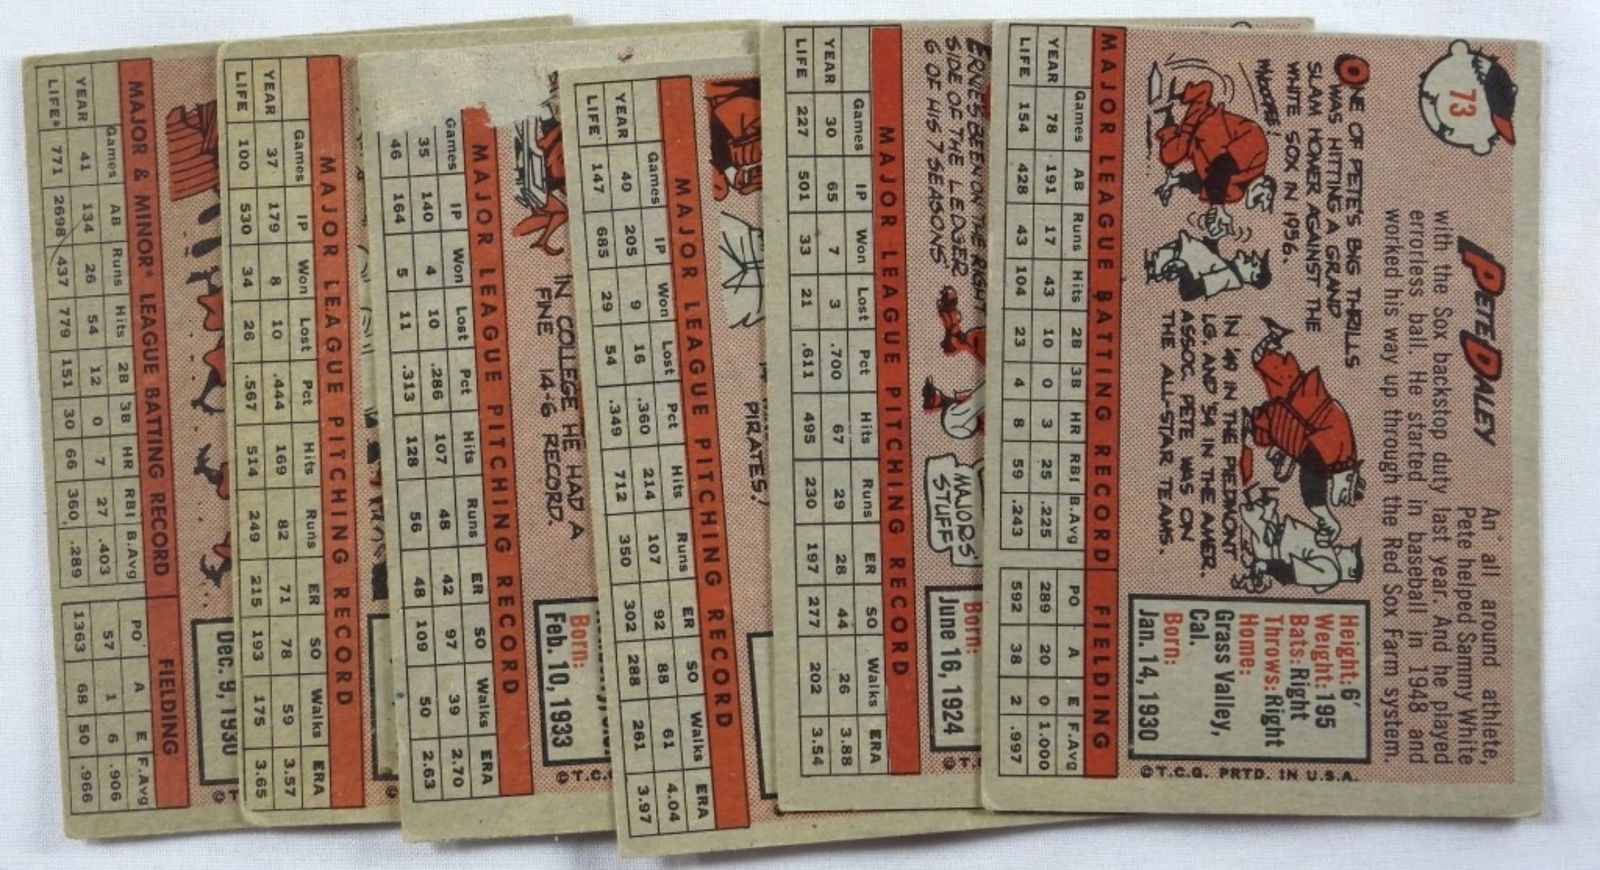 73
PETE DALEY
An all around athlete,
Pete helped Sammy White
with the Sox backstop duty last year. And he played
errorless ball. He started in baseball in 1948 and
worked his way up through the Red Sox Farm system.
ONE OF PETE'S BIG THRILLS
WAS HITTING A GRAND
SLAM HOMER AGAINST THE
WHITE SOX IN 1956.
IN '49 IN THE PIEDMONT
LG. AND '54 IN THE AMER.
ASSOC. PETE WAS ON
THE ALL-STAR TEAMS.
Height: 6'
Weight: 195
Bats: Right
Throws: Right
Home:
Grass Valley,
Cal.
Born:
Jan. 14, 1930
©T.C.G. PRTD. IN U.S.A.
MAJOR LEAGUE BATTING RECORD FIELDING
Games AB Runs Hits 2B 3B HR RBI B.Avg PO A E F.Avg
YEAR 78 191 17 43 10 0 3 25 .225 289 20 0 1.000
LIFE 154 428 43 104 23 4 8 59 .243 592 38 2 .997
ERNIE'S BEEN ON THE RIGHT
SIDE OF THE LEDGER
6 OF HIS 7 SEASONS.
MAJORS'
STUFF
Born:
June 16, 1924
©T.
MAJOR LEAGUE PITCHING RECORD
Games IP Won Lost Pct Hits Runs ER SO Walks ERA
YEAR 30 65 7 3 .700 67 29 28 44 26 3.88
LIFE 227 501 33 21 .611 495 230 197 277 202 3.54
PIRATES!
MAJOR LEAGUE PITCHING RECORD
Games IP Won Lost Pct Hits Runs ER SO Walks ERA
YEAR 40 205 9 16 .360 214 107 92 88 61 4.04
LIFE 147 685 29 54 .349 712 350 302 288 261 3.97
IN COLLEGE HE HAD A
FINE 14-6 RECORD.
Born:
Feb. 10, 1933
©T.C.
MAJOR LEAGUE PITCHING RECORD
Games IP Won Lost Pct Hits Runs ER SO Walks ERA
35 140 4 10 .286 107 48 42 97 39 2.70
46 164 5 11 .313 128 56 48 109 50 2.63
MAJOR LEAGUE PITCHING RECORD
Games IP Won Lost Pct Hits Runs ER SO Walks ERA
YEAR 37 179 8 10 .444 169 82 71 78 59 3.57
LIFE 100 530 34 26 .567 514 249 215 193 175 3.65
Dec. 9, 1930
©T
MAJOR & MINOR* LEAGUE BATTING RECORD FIELDING
Games AB Runs Hits 2B 3B HR RBI B.Avg PO A E F.Avg
YEAR 41 134 26 54 12 0 7 27 .403 57 1 6 .906
LIFE* 771 2698 437 779 151 30 66 360 .289 1363 68 50 .966